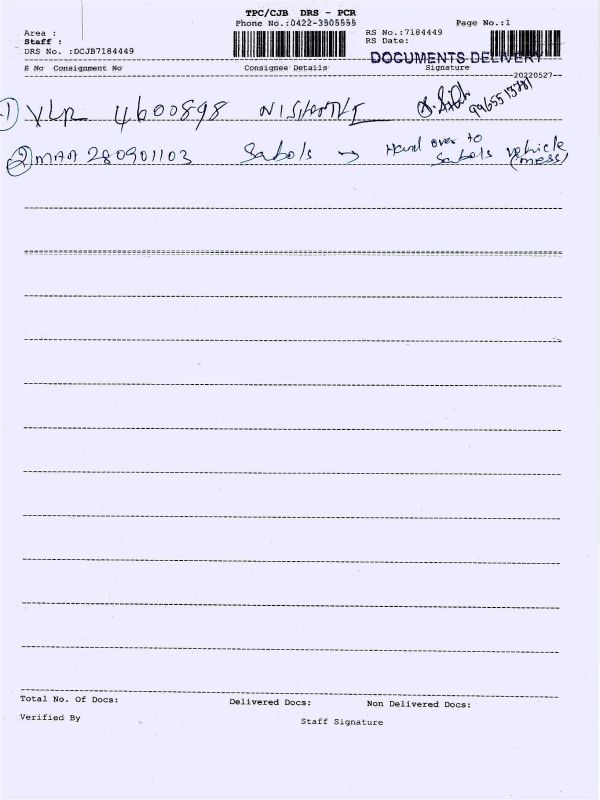 TPC/CJB DRS - PCR
Phone No.:0422-3505555
Page No.:1
Area :
Staff :
DRS No. :DCJB7184449
RS No.:7184449
RS Date:
DOCUMENTS DELIVERY
S No Consignment No Consignee Details Signature
20220527
1 VLR 4600898 NISHANTHI 9965513781
2 MAA 280901103 Sabols → Hand over to
Sabols vehicle
(mess)
Total No. Of Docs: Delivered Docs: Non Delivered Docs:
Verified By Staff Signature